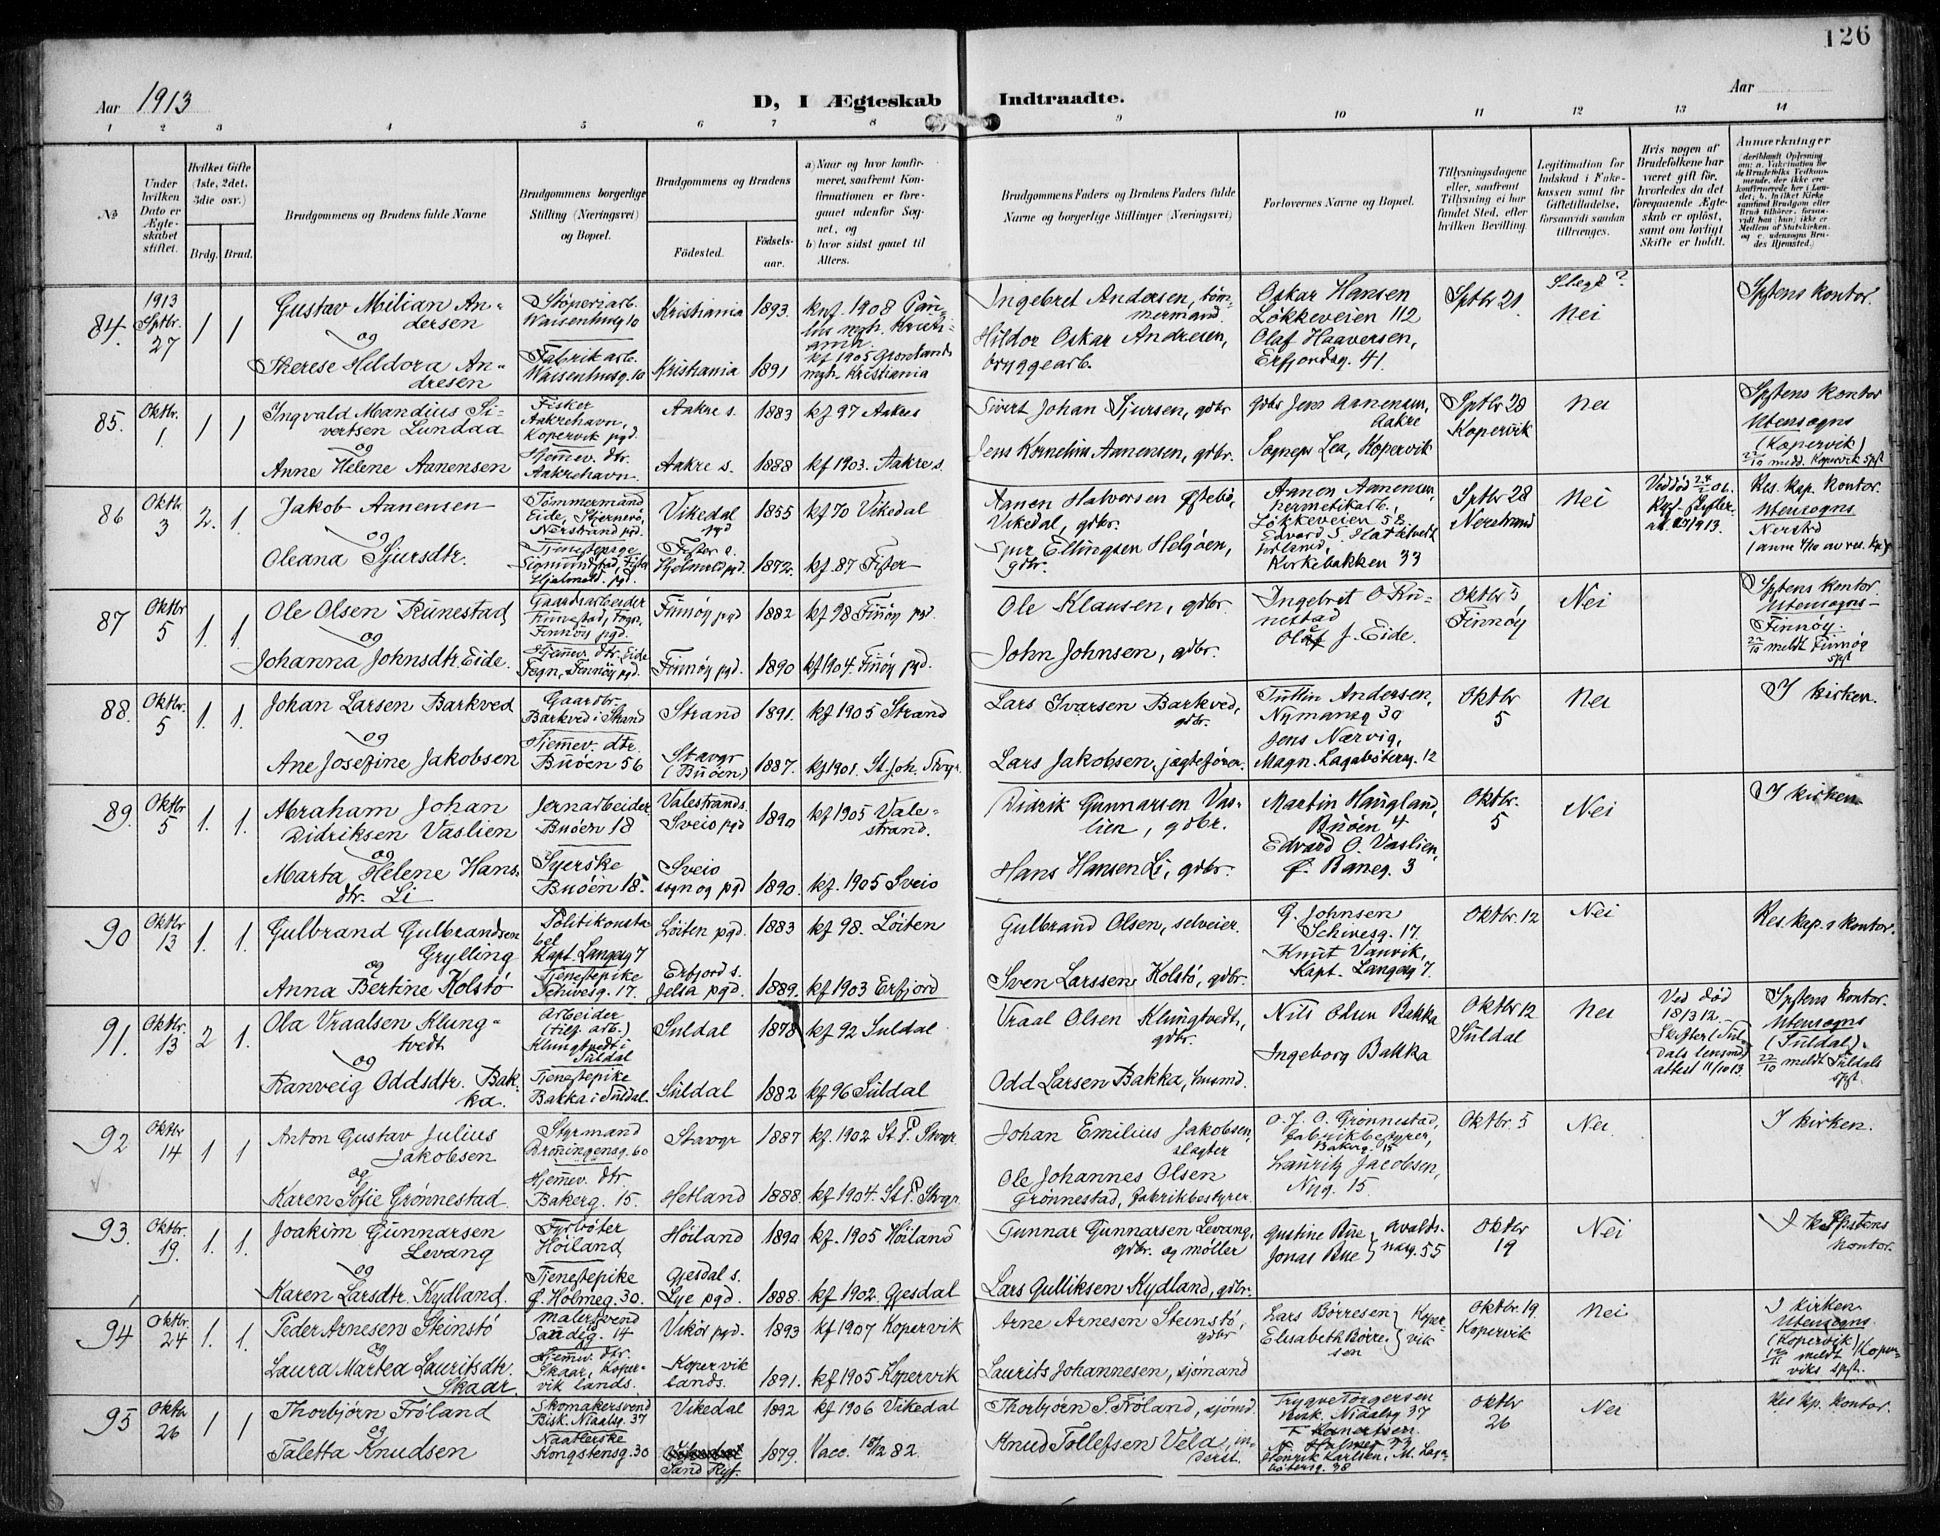 126
Aar 1913
D, I Ægteskab Indtraadte.
Aar
1 2 3 4 5 6 7 8 9 10 11 12 13 14
No
Under hvilken Dato er Ægteskabet stiftet.
Hvilket Gifte (1ste, 2det, 3die osv.)
Brdg. Brud.
Brudgommens og Brudens fulde Navne
Brudgommens borgerlige Stilling (Næringsvei) og Bopæl.
Brudgommens og Brudens
Fødested.
Fødselsaar.
a) Naar og hvor konfirmeret, saafremt Konfirmationen er foregaaet udenfor Sognet, og
b) hvor sidst gaaet til Alters.
Brudgommens Faders og Brudens Faders fulde Navne og borgerlige Stillinger (Næringsvei)
Forlovernes Navne og Bopæl.
Tillysningsdagene eller, saafremt Tillysning ei har fundet Sted, efter hvilken Bevilling.
Legitimation for Indskud i Enkekassen samt for Giftetilladelse, forsaavidt saadan tiltrænges.
Hvis nogen af Brudefolkene har været gift før, hvorledes da det foregaaende Ægteskab er opløst, samt om lovligt Skifte er holdt.
Anmærkninger
84. 1913 Sptbr. 27 1 1
Gustav Milian Andersen
og
Therese Hildora Andresen
Støperiarb. Waisenhusg 10
Fabrikarb. Waisenhusg. 10
Kristiania 1893.
Kristiania 1891
knf. 1908 Paulus mgh. Kristiania.
kf 1905 Grønlands mgh. Kristiania
Ingebret Andersen, tømmermand
Hildor Oskar Andresen, bryggearb.
Oskar Hansen Løkkeveien 112
Olaf Haaversen, Erfjordsg. 41.
Sptbr 21
Slegt? Nei
Spstens kontor.
85. Oktbr. 1. 1 1
Ingvald Mandius Sivertsen Lundaa
og
Anne Helene Aanensen
Fisker Aakrehavn, Kopervik pgd.
Hjemmev. dtr. Aakrehavn.
Aakre s. 1883 kf 97 Aakres
Aakre s. 1888 kf 1903. Aakre s.
Sivert Johan Sjursen, gdbr
Jens Kornelius Aanensen, gdbr.
gdbr Jens Aanensen, Aakre
Sogneps Lea, Kopervik
Sptbr 28 Kopervik
Nei
Spstens kontor
Utensogns (Kopervik)
22/10 medd. Kopervik spst
86 Oktbr. 3 2. 1.
Jakob Aanensen
og
Oleana Sjursdtr.
Tømmermand Eide, Nerstrand pgd.
Tjenestepige Sigmundstad, Fister Hjelmel. pgd.
Vikedal pgd 1855 kf 70 Vikedal
Fister s. Hjelmelds pgd. 1872. kf. 87 Fister
Aanen Halvorsen Østebø, Vikedal, gdbr.
Sjur Ellingsen Helgøen, gdbr.
Aanen Aanensen, hermetikarb., Løkkeveien 58.
Kirkebakken 33
Sptbr 28 Nerstrand
Nei
Res. kap. kontor. Utensogns Nerstrd
87 Oktbr 5 1. 1.
Ole Olsen Runestad
og
Johanna Johnsdtr. Eide.
Gaardsarbeider Runestad, Fogn, Finnøy pgd.
Hjemmev. dtr. Eide Fogn, Finnøy pgd.
Finnøy pgd 1882 kf 98 Finnøy pgd.
Finnøy pgd. 1890 kf 1904. Finøy pgd.
Ole Klausen, gdbr.
John Johnsen, gdbr.
Ingebret O Runestad
J. Eide.
Oktbr 5 Finnøy
Nei
Spstens kontor. Utensogns- Finnöy.
22/10 meldt Finnöy spst
88. Oktbr. 5 1. 1.
Johan Larsen Barkved
og
Ane Josefine Jakobsen
Gaardbr. Barkved i Strand
Hjemmev. dtr. Buøen 56
Strand 1891. kf 1905 Strand
Stavgr (Buøen) 1887. kf 1901. St. Joh. Stvgr.
Lars Ivarsen Barkved, gdbr.
Lars Jakobsen, jægtefører.
Andersen, Nymansg 30
Jens Nærvig, Magn. Lagabøterg. 12
Oktbr 5
Nei
I kirken.
89. Oktbr. 5 1. 1.
Abraham Johan Didriksen Vaslien
og
Marta Helene Hansdtr. Li
Jernarbeider Buøen 18
Syerske Buøen 18.
Valestrands. Sveio pgd 1890 kf 1905 Valestrand.
Sveio sogn og pgd 1890. kf. 1905 Sveio
Didrik Gunnarsen Vaslien, gdbr.
Hans Hansen Li, gdbr.
Martin Haugland, Buøen 4
Edvard O. Vaslien, Ø. Baneg. 3
Oktbr. 5
Nei
I kirken
90 Oktbr 13 1. 1.
Gulbrand Gulbrandsen Grylling
og
Anna Bertine Kolstø
Politikonstabel Kapt. Langeg 7
Tjenestepike Schivesg. 17.
Løiten pgd. 1883 kf 98. Løiten
Erfjord s. Jelsa pgd. 1889. kf 1903 Erfjord
Gulbrand Olsen, selveier.
Sven Larssen Kolstø, gdbr.
G. Johnsen Schivesg. 17
Knut Vanvik, Kapt. Langeg 7.
Oktbr. 12
Nei
Res. kap.s kontor.
91. Oktbr. 13 2 1.
Ola Vraalsen Klungtvedt
og
Ranveig Oddsdtr. Bakka.
Arbeider Klungtvedt i Suldal
Tjenestepike Bakka i Suldal
Suldal 1878 kf 92 Suldal
Suldal 1882 kf 96 Suldal
Vraal Olsen Klungtvedt, gdbr.
Odd Larsen Bakka, husmd.
Nils Olsen Bakka
Ingeborg Bakka
Oktbr 12 Suldal
Nei
Ved død 18/3 12. Skifter (Suldals lensmd attest 11/10 13.
Spstens kontor. Utensogns (Suldal).
22/10 meldt Suldals spst.
92 Oktbr 14 1 1
Anton Gustav Julius Jakobsen
og
Karen Sofie Grønnestad
Styrmand Dronningensg. 60
Hjemmev. dtr Bakerg. 15.
Stavgr 1887 kf. 1902 St. P. Stvgr.
Hetland 1888. kf 1904. St. P. Stvgr.
Johan Emilius Jakobsen, slagter
Ole Johannes Olsen Grønnestad, fabrikbestyrer.
O. J. O. Grønnestad, fabrikbestyrer, Bakerg. 15
Lauritz Jacobsen, Nyg. 15.
Oktbr. 5
Nei
I kirken.
93. Oktbr. 19. 1. 1.
Joakim Gunnarsen Levang
og
Karen Larsdtr. Kydland.
Fyrbøter Høiland
Tjenestepike Ø. Holmeg. 30.
Høiland 1890 kf. 1905 Høiland
Gjesdal s. Lye pgd. 1888. kf 1902. Gjesdal
Gunnar Gunnarsen Levang, gdbr. og møller
Lars Gulliksen Kydland, gdbr.
Gustine Bue
Jonas Bue
Avaldsnæsg. 55
Oktbr 19
Nei
Spstens kontor.
94 Oktbr. 24 1. 1.
Peder Arnesen Steinstø
og
Laura Martea Lauritsdtr. Skaar
Malersvend Sandig. 14
Hjemmev. dtr. Skaar, Kopervik lands.
Vikör pgd. 1893 kf 1907 Kopervik
Kopervik lands. 1891. kf 1905 Kopervik
Arne Arnesen Steinstø, gdbr
Laurits Johannesen, sjömand
Lars Børresen
Elisabeth Børresen
Kopervik
Oktbr. 19 Kopervik
Nei
I kirken. Utensogns (Kopervik)
meldt Koperviks spst.
95 Oktbr 26 1 1
Thorbjørn Frøland
og
Taletta Knudsen
Skomakersvend Bisk. Nialsg. 37
Naatlerske Kongstensg. 30
Vikedal 1892 kf 1906 Vikedal
Sand Ryf. 1879. Vacc. 18/2 82.
Thorbjørn S. Frøland, sjømd
Knud Tollefsen Vela, inderst.
Trygve Torgersen Bisk. Nialsg 37
Henrik Karlsen, M. Lagabøtersg. 38
Oktbr 26
Nei
Res kp. kontor.